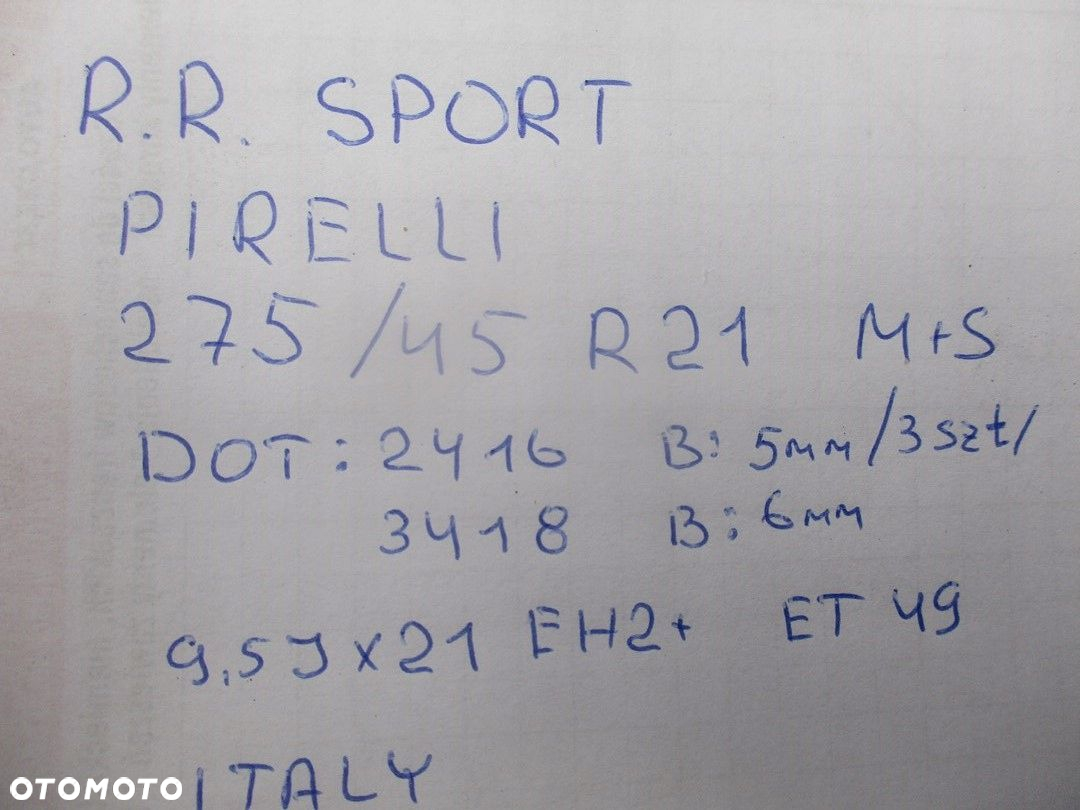 R.R. SPORT
PIRELLI
275/45 R21 M+S
DOT: 2416 B: 5mm /3szt/
3418 B: 6mm
9,5J x 21 EH2+ ET 49
ITALY
OTOMOTO